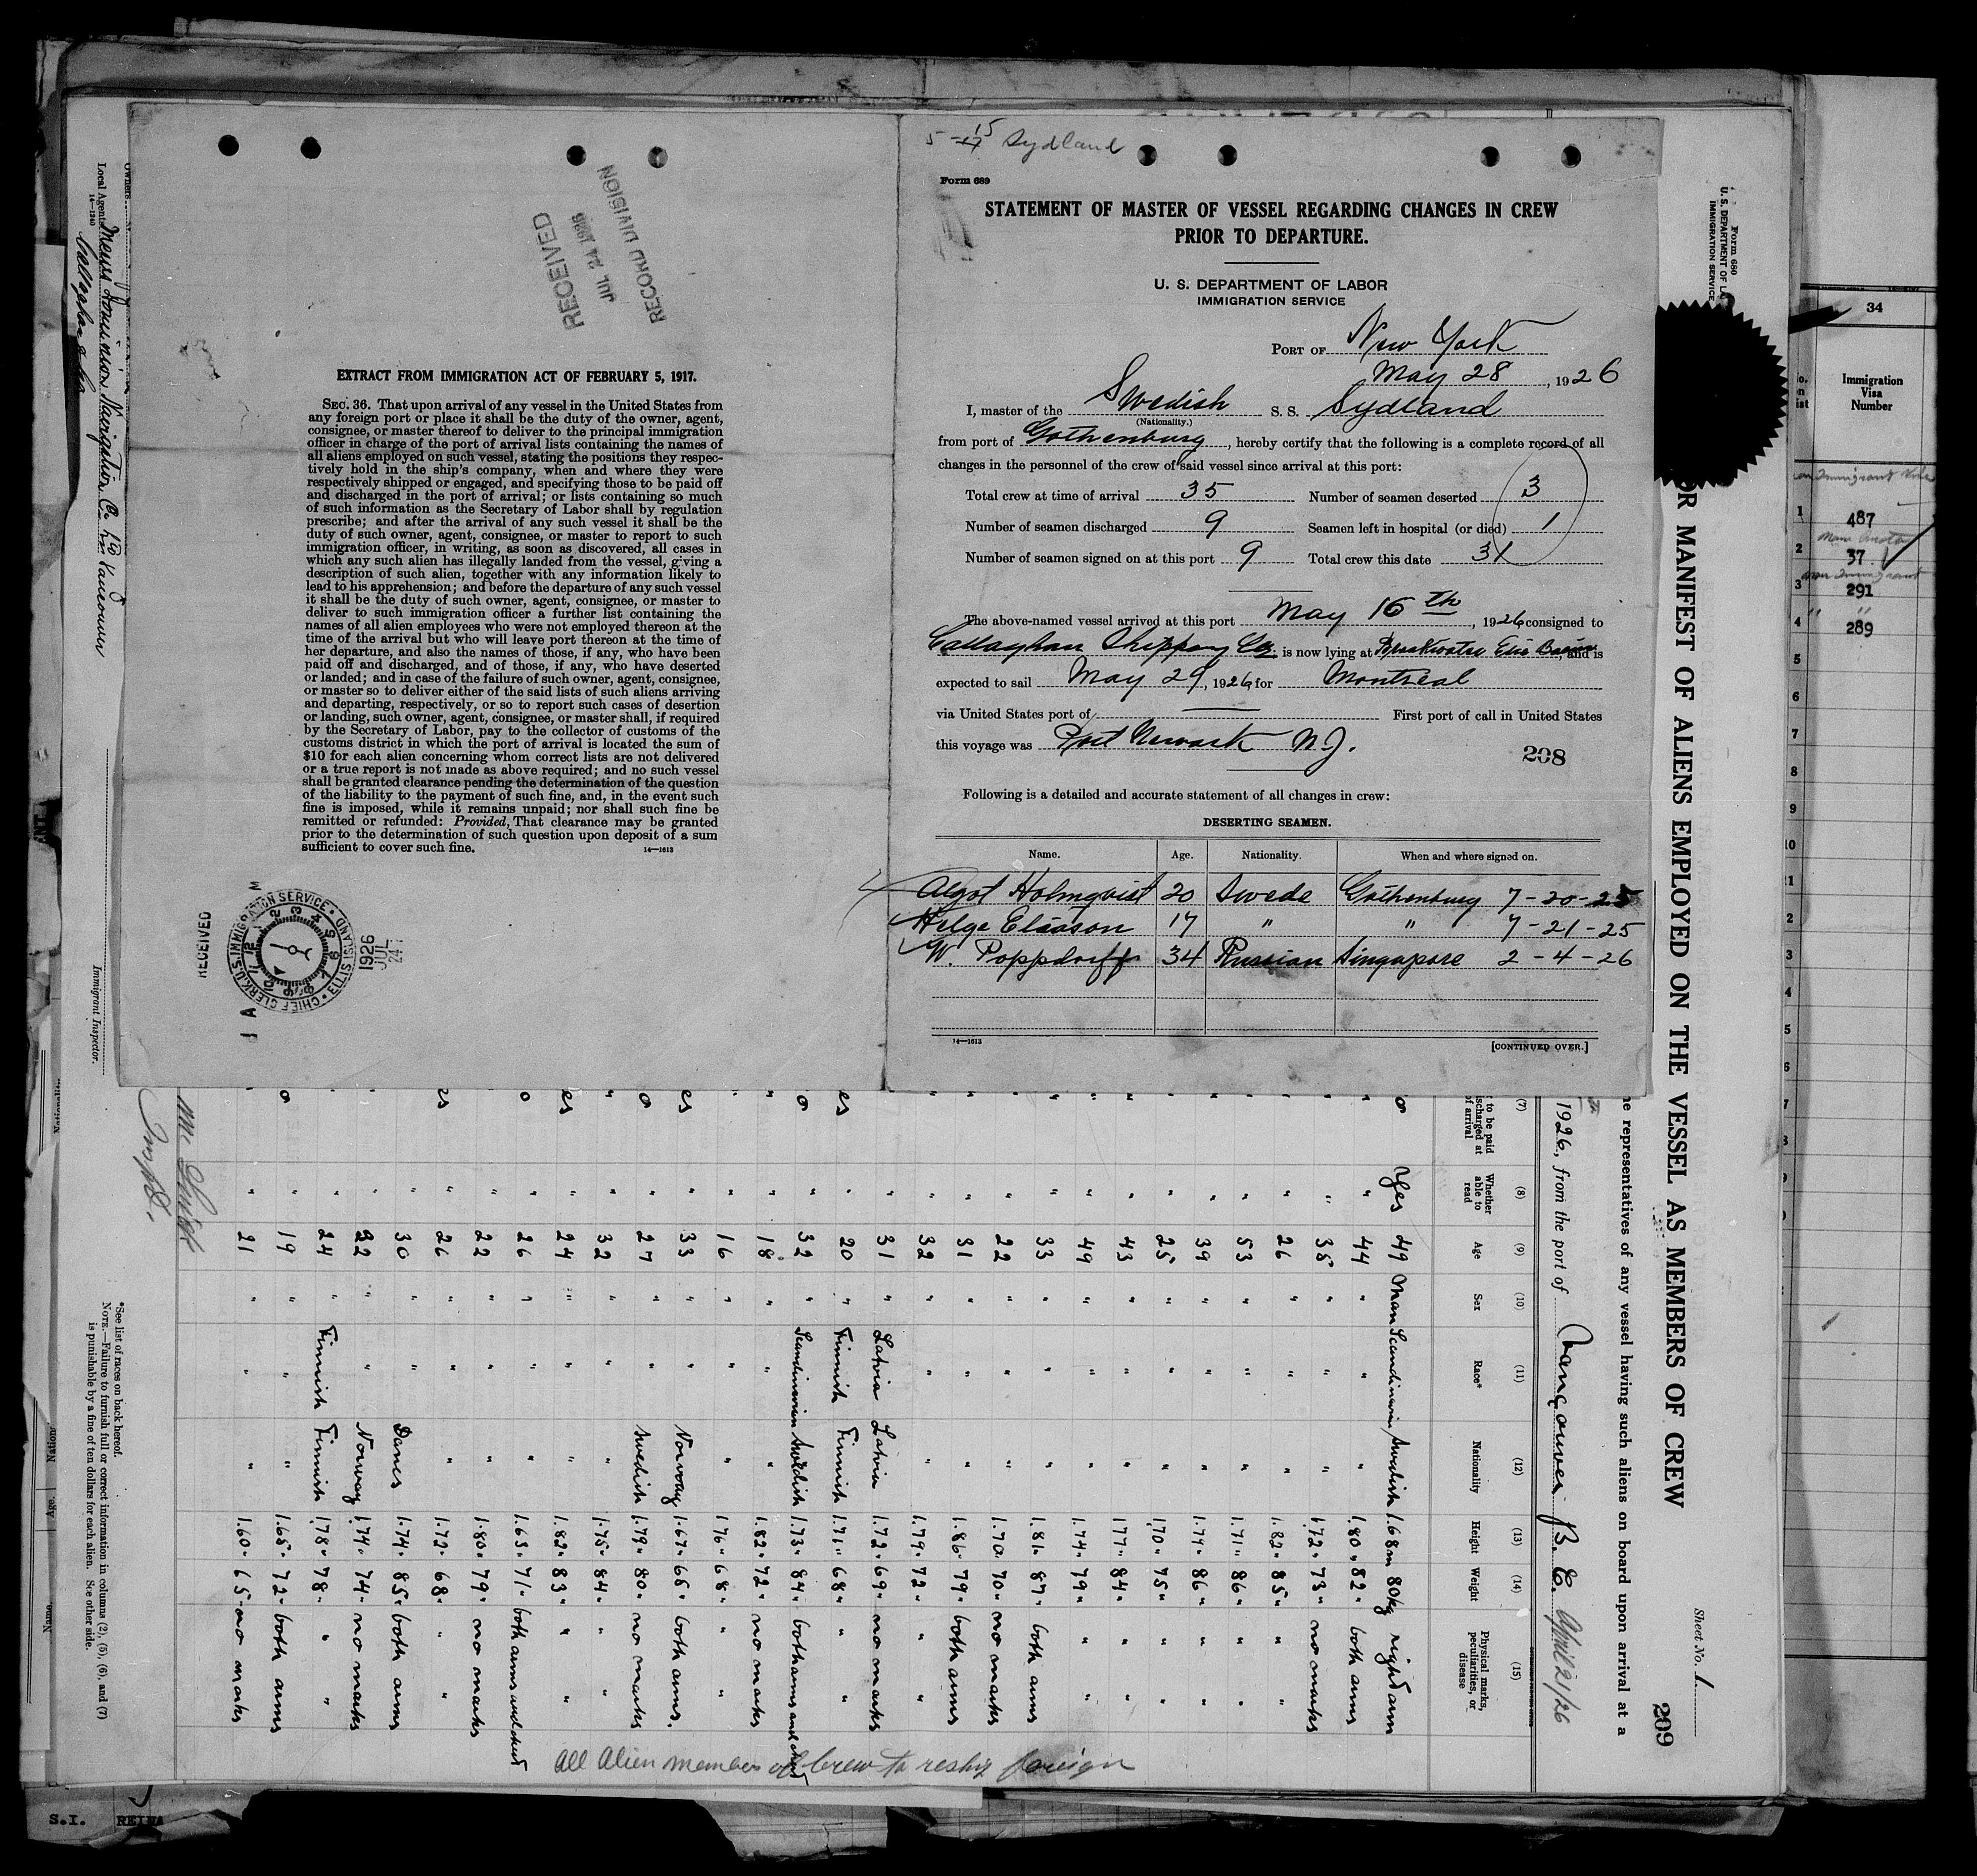 5-15 Sydland
Form 689
STATEMENT OF MASTER OF VESSEL REGARDING CHANGES IN CREW
PRIOR TO DEPARTURE.
U. S. DEPARTMENT OF LABOR
IMMIGRATION SERVICE
PORT OF New York
May 28, 1926
I, master of the Swedish S. S. Sydland
(Nationality.)
from port of Gothenburg, hereby certify that the following is a complete record of all
changes in the personnel of the crew of said vessel since arrival at this port:
Total crew at time of arrival 35 Number of seamen deserted 3
Number of seamen discharged 9 Seamen left in hospital (or died) 1
Number of seamen signed on at this port 9 Total crew this date 31
The above-named vessel arrived at this port May 16th, 1926 consigned to
Callaghan Shipping Co. is now lying at Breakwater Erie Basin, and is
expected to sail May 29, 1926 for Montreal
via United States port of First port of call in United States
this voyage was Port Newark N.J.
208
Following is a detailed and accurate statement of all changes in crew:
DESERTING SEAMEN.
Name. Age. Nationality. When and where signed on.
Algot Holmqvist 20 Swede Gothenburg 7-20-25
Helge Eliason 17 " " 7-21-25
W. Poppdorff 34 Russian Singapore 2-4-26
14—1613
[CONTINUED OVER.]
RECEIVED
JUL 24 1926
RECORD DIVISION
EXTRACT FROM IMMIGRATION ACT OF FEBRUARY 5, 1917.
SEC. 36. That upon arrival of any vessel in the United States from
any foreign port or place it shall be the duty of the owner, agent,
consignee, or master thereof to deliver to the principal immigration
officer in charge of the port of arrival lists containing the names of
all aliens employed on such vessel, stating the positions they respec-
tively hold in the ship's company, when and where they were
respectively shipped or engaged, and specifying those to be paid off
and discharged in the port of arrival; or lists containing so much
of such information as the Secretary of Labor shall by regulation
prescribe; and after the arrival of any such vessel it shall be the
duty of such owner, agent, consignee, or master to report to such
immigration officer, in writing, as soon as discovered, all cases in
which any such alien has illegally landed from the vessel, giving a
description of such alien, together with any information likely to
lead to his apprehension; and before the departure of any such vessel
it shall be the duty of such owner, agent, consignee, or master to
deliver to such immigration officer a further list containing the
names of all alien employees who were not employed thereon at the
time of the arrival but who will leave port thereon at the time of
her departure, and also the names of those, if any, who have been
paid off and discharged, and of those, if any, who have deserted
or landed; and in case of the failure of such owner, agent, consignee,
or master so to deliver either of the said lists of such aliens arriving
and departing, respectively, or so to report such cases of desertion
or landing, such owner, agent, consignee, or master shall, if required
by the Secretary of Labor, pay to the collector of customs of the
customs district in which the port of arrival is located the sum of
$10 for each alien concerning whom correct lists are not delivered
or a true report is not made as above required; and no such vessel
shall be granted clearance pending the determination of the question
of the liability to the payment of such fine, and, in the event such
fine is imposed, while it remains unpaid; nor shall such fine be
remitted or refunded: Provided, That clearance may be granted
prior to the determination of such question upon deposit of a sum
sufficient to cover such fine.
14—1613
RECEIVED
U.S. IMMIGRATION SERVICE • ELLIS ISLAND • CHIEF CLERK
1926
JUL
24
Form 680
U. S. DEPARTMENT OF LA
IMMIGRATION SERVICE
OR MANIFEST OF ALIENS EMPLOYED ON THE VESSEL AS MEMBERS OF CREW
Sheet No. 1
209
he representatives of any vessel having such aliens on board upon arrival at a
1926, from the port of Vancouver B. C. April 21/26
(7) (8) (9) (10) (11) (12) (13) (14) (15)
to be paid
scharged at
of arrival
Whether
able to
read
Age
Sex
Race*
Nationality
Height
Weight
Physical marks,
peculiarities, or
disease
o Yes 49 Man Scandinavian Swedish 1.68m 80kg right arm
" " 44 " " " 1.80 " 82 " both arms
" " 38 " " " 1.72 " 73 " no marks
" " 26 " " " 1.82 " 85 " "
" " 53 " " " 1.71 " 86 " "
" " 39 " " " 1.74 " 86 " "
" " 25 " " " 1.70 " 75 " "
" " 43 " " " 1.77 " 84 " "
" " 49 " " " 1.74 " 79 " "
" " 33 " " " 1.81 " 87 " both arms
" " 22 " " " 1.70 " 70 " no marks
" " 31 " " " 1.86 " 79 " both arms
" " 32 " " " 1.79 " 72 " "
" " 31 " Latvia Latvia 1.72 " 69 " no marks
es " 20 " Finnish Finnish 1.71 " 68 " "
o " 32 " Scandinavian Swedish 1.73 " 84 " both arms and chest
" " 18 " " " 1.82 " 72 " no marks
" " 16 " " " 1.76 " 68 " "
es " 33 " " Norway 1.67 " 66 " both arms.
o " 27 " " Swedish 1.79 " 80 " no marks
" " 32 " " " 1.75 " 84 " "
es " 24 " " " 1.82 " 83 " "
o " 26 " " " 1.63 " 71 " both arms and chest
" " 22 " " " 1.80 " 79 " no marks
es " 26 " " " 1.72 " 68 " "
" " 30 " " Danes 1.74 " 85 " both arms
" " 22 " " Norway 1.74 " 74 " no marks
" " 24 " Finnish Finnish 1.78 " 78 " "
o " 19 " " " 1.65 " 72 " both arms
" " 21 " " " 1.60 " 65 " no marks
All Alien members of crew to reship foreign
*See list of races on back hereof.
NOTE.—Failure to furnish full or correct information in columns (2), (5), (6), and (7)
is punishable by a fine of ten dollars for each alien. See other side.
Immigrant Inspector.
Owners
Local Agents Messrs Dominion Navigation Co. Ltd Vancouver
14—1240
34
Immigration
Visa
Number
487
37
291
289
S.I.